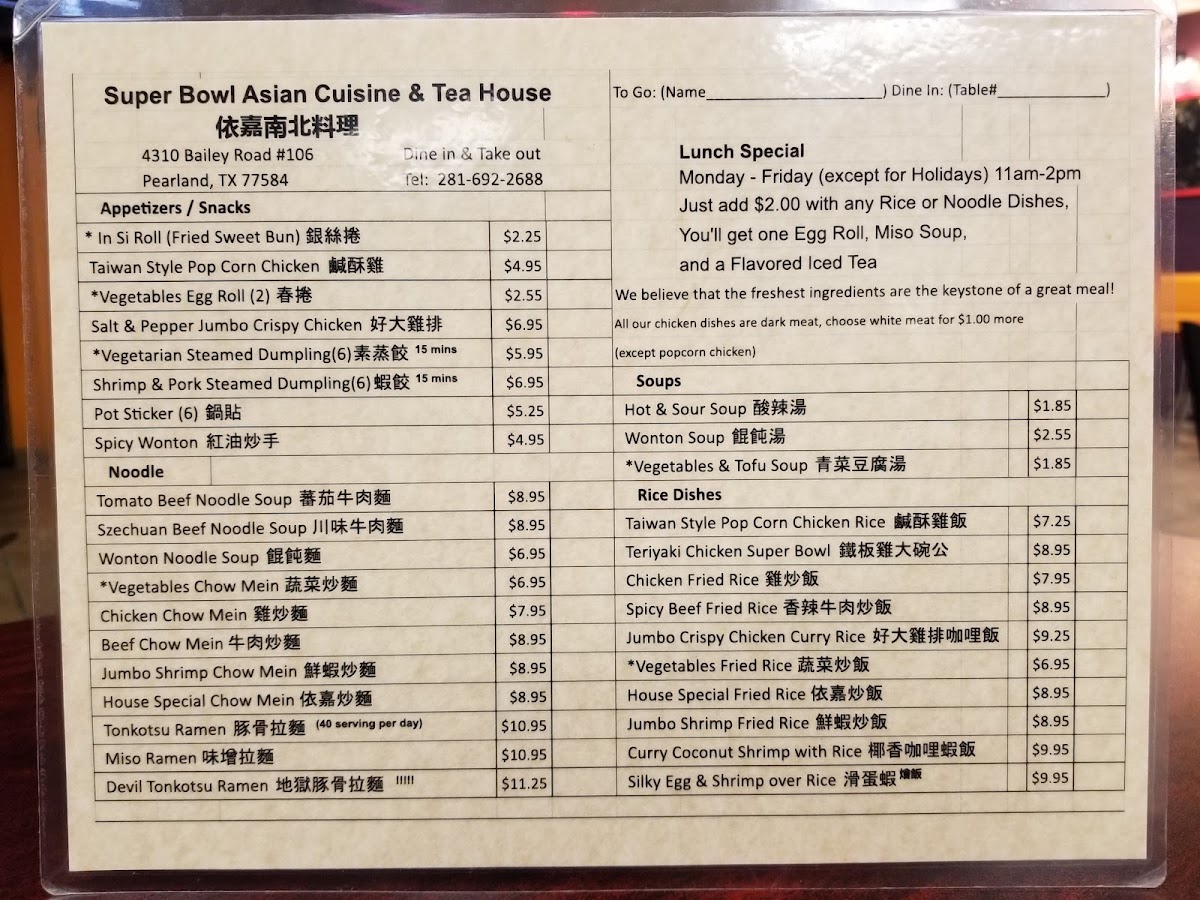 Super Bowl Asian Cuisine & Tea House
依嘉南北料理
4310 Bailey Road #106 Dine in & Take out
Pearland, TX 77584 Tel: 281-692-2688
Appetizers / Snacks
* In Si Roll (Fried Sweet Bun) 銀絲捲 $2.25
Taiwan Style Pop Corn Chicken 鹹酥雞 $4.95
*Vegetables Egg Roll (2) 春捲 $2.55
Salt & Pepper Jumbo Crispy Chicken 好大雞排 $6.95
*Vegetarian Steamed Dumpling(6) 素蒸餃 15 mins $5.95
Shrimp & Pork Steamed Dumpling(6) 蝦餃 15 mins $6.95
Pot Sticker (6) 鍋貼 $5.25
Spicy Wonton 紅油炒手 $4.95
Noodle
Tomato Beef Noodle Soup 蕃茄牛肉麵 $8.95
Szechuan Beef Noodle Soup 川味牛肉麵 $8.95
Wonton Noodle Soup 餛飩麵 $6.95
*Vegetables Chow Mein 蔬菜炒麵 $6.95
Chicken Chow Mein 雞炒麵 $7.95
Beef Chow Mein 牛肉炒麵 $8.95
Jumbo Shrimp Chow Mein 鮮蝦炒麵 $8.95
House Special Chow Mein 依嘉炒麵 $8.95
Tonkotsu Ramen 豚骨拉麵 (40 serving per day) $10.95
Miso Ramen 味增拉麵 $10.95
Devil Tonkotsu Ramen 地獄豚骨拉麵 !!!!! $11.25
To Go: (Name____________________) Dine In: (Table#____________)
Lunch Special
Monday - Friday (except for Holidays) 11am-2pm
Just add $2.00 with any Rice or Noodle Dishes,
You'll get one Egg Roll, Miso Soup,
and a Flavored Iced Tea
We believe that the freshest ingredients are the keystone of a great meal!
All our chicken dishes are dark meat, choose white meat for $1.00 more
(except popcorn chicken)
Soups
Hot & Sour Soup 酸辣湯 $1.85
Wonton Soup 餛飩湯 $2.55
*Vegetables & Tofu Soup 青菜豆腐湯 $1.85
Rice Dishes
Taiwan Style Pop Corn Chicken Rice 鹹酥雞飯 $7.25
Teriyaki Chicken Super Bowl 鐵板雞大碗公 $8.95
Chicken Fried Rice 雞炒飯 $7.95
Spicy Beef Fried Rice 香辣牛肉炒飯 $8.95
Jumbo Crispy Chicken Curry Rice 好大雞排咖哩飯 $9.25
*Vegetables Fried Rice 蔬菜炒飯 $6.95
House Special Fried Rice 依嘉炒飯 $8.95
Jumbo Shrimp Fried Rice 鮮蝦炒飯 $8.95
Curry Coconut Shrimp with Rice 椰香咖哩蝦飯 $9.95
Silky Egg & Shrimp over Rice 滑蛋蝦燴飯 $9.95